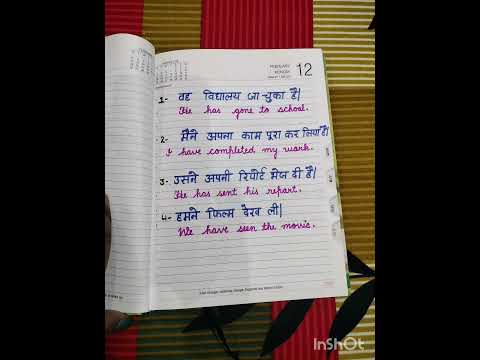 FEBRUARY
MONDAY
12
1- वह विद्यालय जा चुका है।
He has gone to school.
2- मैंने अपना काम पूरा कर लिया है।
I have completed my work.
3- उसने अपनी रिपोर्ट भेज दी है।
He has sent his repart.
4- हमने फिल्म देख ली।
We have seen the movie.
InShOt